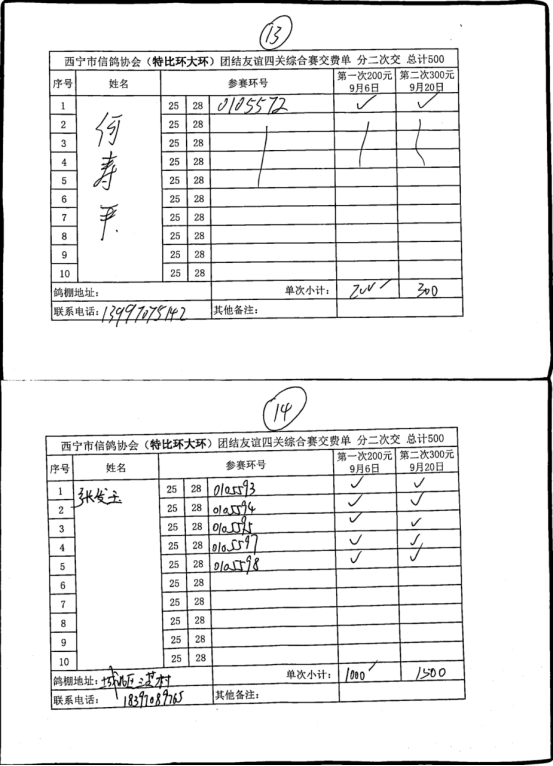 13
西宁市信鸽协会（特比环大环）团结友谊四关综合赛交费单 分二次交 总计500
序号 姓名 参赛环号 第一次200元 9月6日 第二次300元 9月20日
1 何寿平 25 28 0105572 ✓ ✓
2 25 28
3 25 28
4 25 28
5 25 28
6 25 28
7 25 28
8 25 28
9 25 28
10 25 28
鸽棚地址： 单次小计： 200 300
联系电话：13997075142 其他备注：
14
西宁市信鸽协会（特比环大环）团结友谊四关综合赛交费单 分二次交 总计500
序号 姓名 参赛环号 第一次200元 9月6日 第二次300元 9月20日
1 张发玉 25 28 0105593 ✓ ✓
2 25 28 0105594 ✓ ✓
3 25 28 0105595 ✓ ✓
4 25 28 0105597 ✓ ✓
5 25 28 0105598 ✓ ✓
6 25 28
7 25 28
8 25 28
9 25 28
10 25 28
鸽棚地址： 村 单次小计： 1000 1500
联系电话： 18397089765 其他备注：